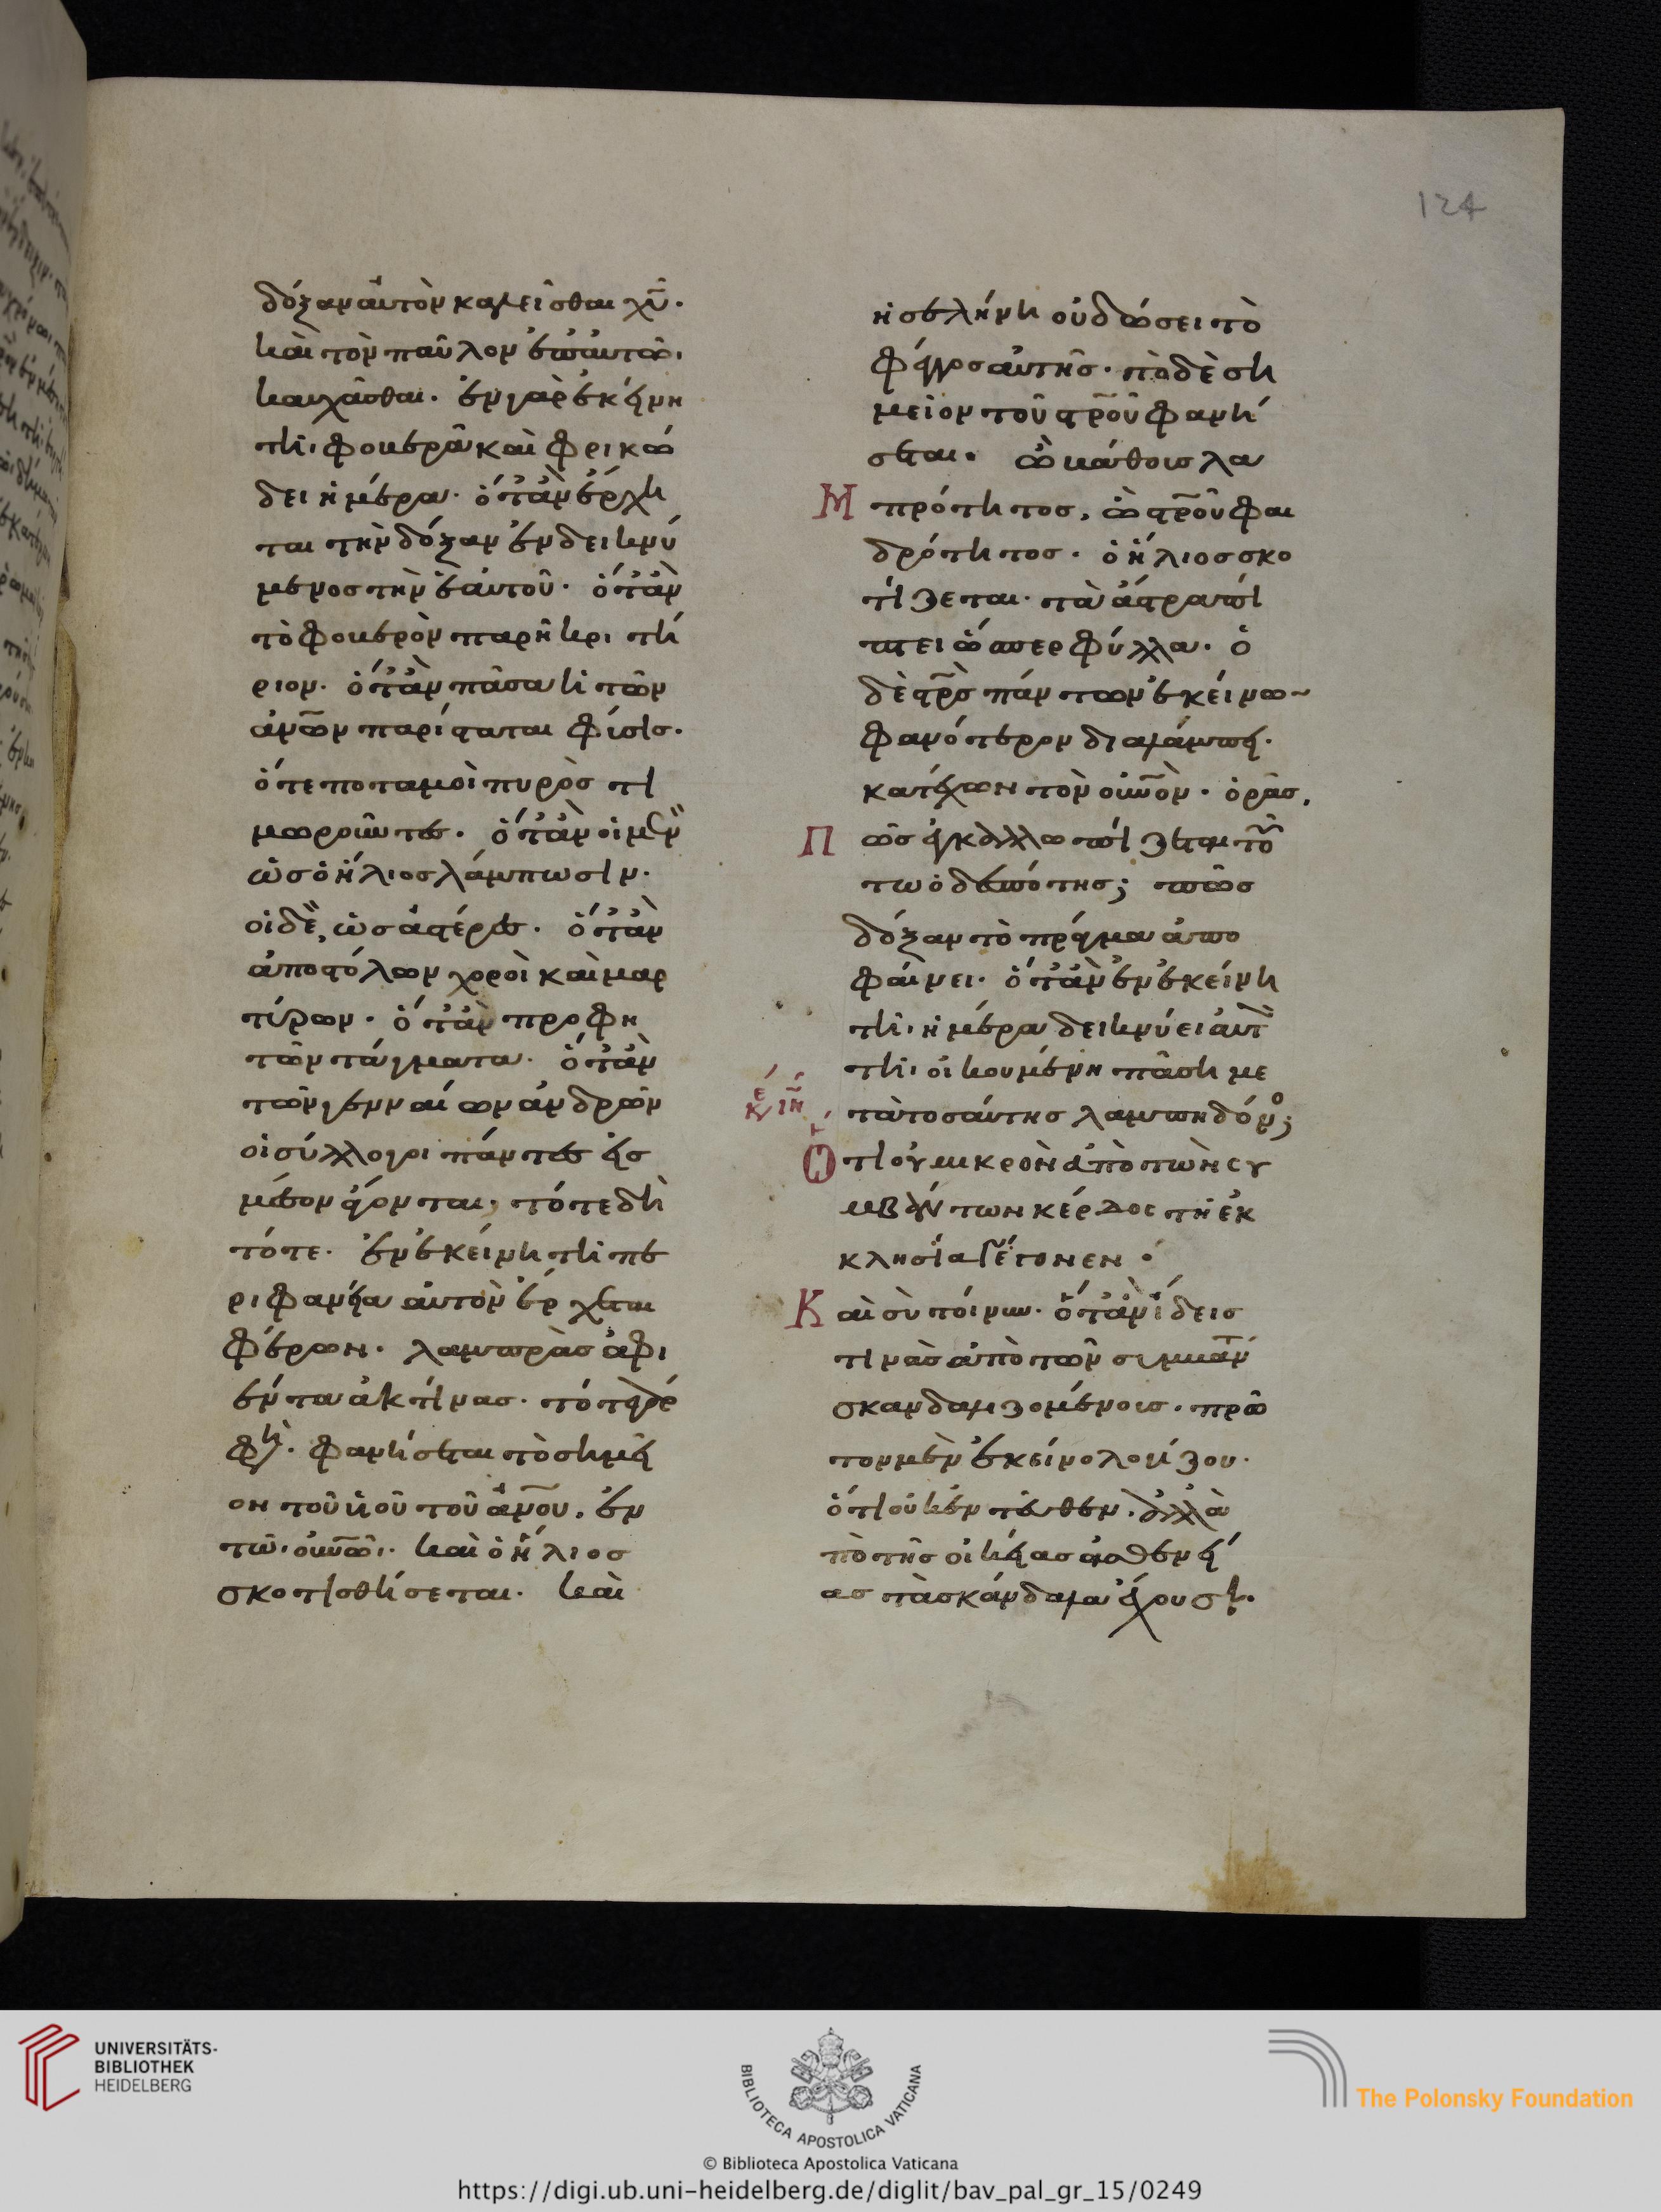 δόξαν αὐτὸν καλεῖσθαι χῡ·
καὶ τὸν παῦλον ἐπ' αὐτῶ·
καυχᾶσθαι· ἐν γὰρ ἐκείνη
τῆι φοβερᾶ καὶ φρικώ
δει ἡμέρα· ὅταν ἔρχη
ται τὴν δόξαν ἐνδεικνύ
μενος τὴν ἑαυτοῦ· ὅταν
τὸ φοβερὸν παρῆ κριτή
ριον· ὅταν πᾶσα ἡ τῶν
ἀν̅ων παρίσταται φύσις·
ὅτε ποταμοὶ πυρὸς τι
μωροῦντες· ὅταν οἱ μὲν
ὡς ὁ ἥλιος λάμπωσιν·
οἱ δὲ, ὡς ἀστέρες· ὅταν
ἀποστόλων χοροὶ καὶ μαρ
τύρων· ὅταν προφη
τῶν τάγματα· ὅταν
τῶν γενναίων ἀνδρῶν
οἱ σύλλογοι πάντες εἰς
μέσον ἄγονται, τότε δὴ
τότε· ἐν ἐκείνη τῆι πε
ριφανεία αὐτὸν ἔρχεται
φέρων· λαμπρὰς ἀφι
έντα ἀκτίνας· τότε
φησὶ· φανήσεται τὸ σημεῖ
ον τοῦ υἱοῦ τοῦ ἀν̅ου· ἐν
τῶι οὐν̅ῶι· καὶ ὁ ἥλιος
σκοτισθήσεται· καὶ
ἡ σελήνη οὐ δώσει τὸ
φέγγος αὐτῆς· τὸ δὲ ση
μεῖον τοῦ στρ̅οῦ φανή
σεται· ὢ κάθοις λα
Μπρότητος, ὢ στρ̅οῦ φαι
δρότητος· ὁ ἥλιος σκο
τίζεται· τὰ ἄστρα πί
πτει ὥσπερ φύλλα· ὁ
δὲ στρ̅ὸς πάντων ἐκείνω~
φανότερον διαλάμπει·
κατέχων τὸν οὐν̅ὸν· ὁρᾶς,
Πῶς ἐγκαλλωπίζεται τού
τω ὁ δεσπότης; πῶς
δόξαν τὸ πρᾶγμα ἀπο
φαίνει· ὅταν ἐν ἐκείνη
τῆι ἡμέρα δεικνύει αὐτὸν
τῆι οἰκουμένη πάση με
τὰ τοσαύτης λαμπηδόνος;
Ὅτι οὐ μικρὸν ἀπὸ τῶν συ
μβάντων κέρδος τῆ ἐκ
κλησία γέγονεν·
Καὶ σὺ τοίνυν· ὅταν ἴδεις
τινὰς ἀπὸ τῶν συμβάντ
σκανδαλιζομένοις· πρῶ
τον μὲν ἐκεῖνο λογίζου·
ὅτι οὐκ ἐντεῦθεν· ἀλλὰ
πὸ τῆς οἰκείας ἀσθενεί
ας τὰ σκάνδαλα ἔχουσι·
124
UNIVERSITÄTS-
BIBLIOTHEK
HEIDELBERG
BIBLIOTECA APOSTOLICA VATICANA
The Polonsky Foundation
© Biblioteca Apostolica Vaticana
https://digi.ub.uni-heidelberg.de/diglit/bav_pal_gr_15/0249